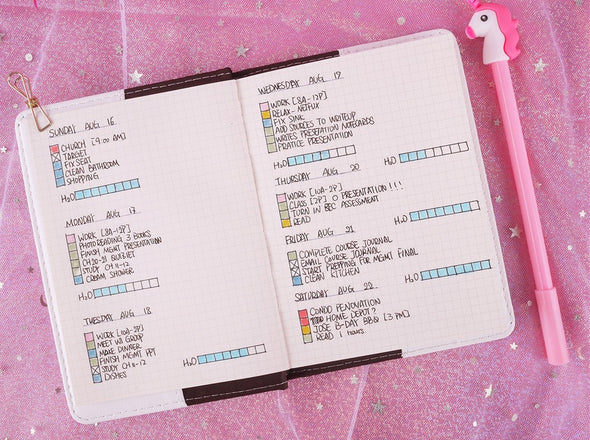 SUNDAY AUG 16
CHURCH [9:00 AM)
TARGET
FIX SEAT
CLEAN BATHROOM
SHOPPING
H2O
MONDAY AUG 17
WORK [8A-12P]
PHOTOREADING 3 BOOKS
FINISH MGMT PRESENTATION
CH 20-21 BUDGET
STUDY CH 11-12
CREAM SHOWER
H2O
TUESDAY AUG 18
WORK [10A-2P]
MEET W/ GROUP
MAKE DINNER
FINISH MGMT PPT
STUDY CH 11-12
DISHES
H2O
WEDNESDAY AUG 19
WORK [8A-12P]
RELAX - NETFLIX
FIX SINK
ADD SOURCES TO WRITEUP
WRITES PRESENTATION NOTECARDS
PRATICE PRESENTATION
H2O
H2O
THURSDAY AUG 20
WORK [10A-2P]
CLASS [2P] O PRESENTATION!!!
TURN IN BEC ASSESSMENT
READ
H2O
FRIDAY AUG 21
COMPLETE COURSE JOURNAL
EMAIL COURSE JOURNAL
START PREPPING FOR MGMT FINAL
CLEAN KITCHEN
H2O
SATURDAY AUG 22
CONDO RENOVATION
HOME DEPOT?
JOSE B-DAY BBQ [3 PM]
READ 1 hours